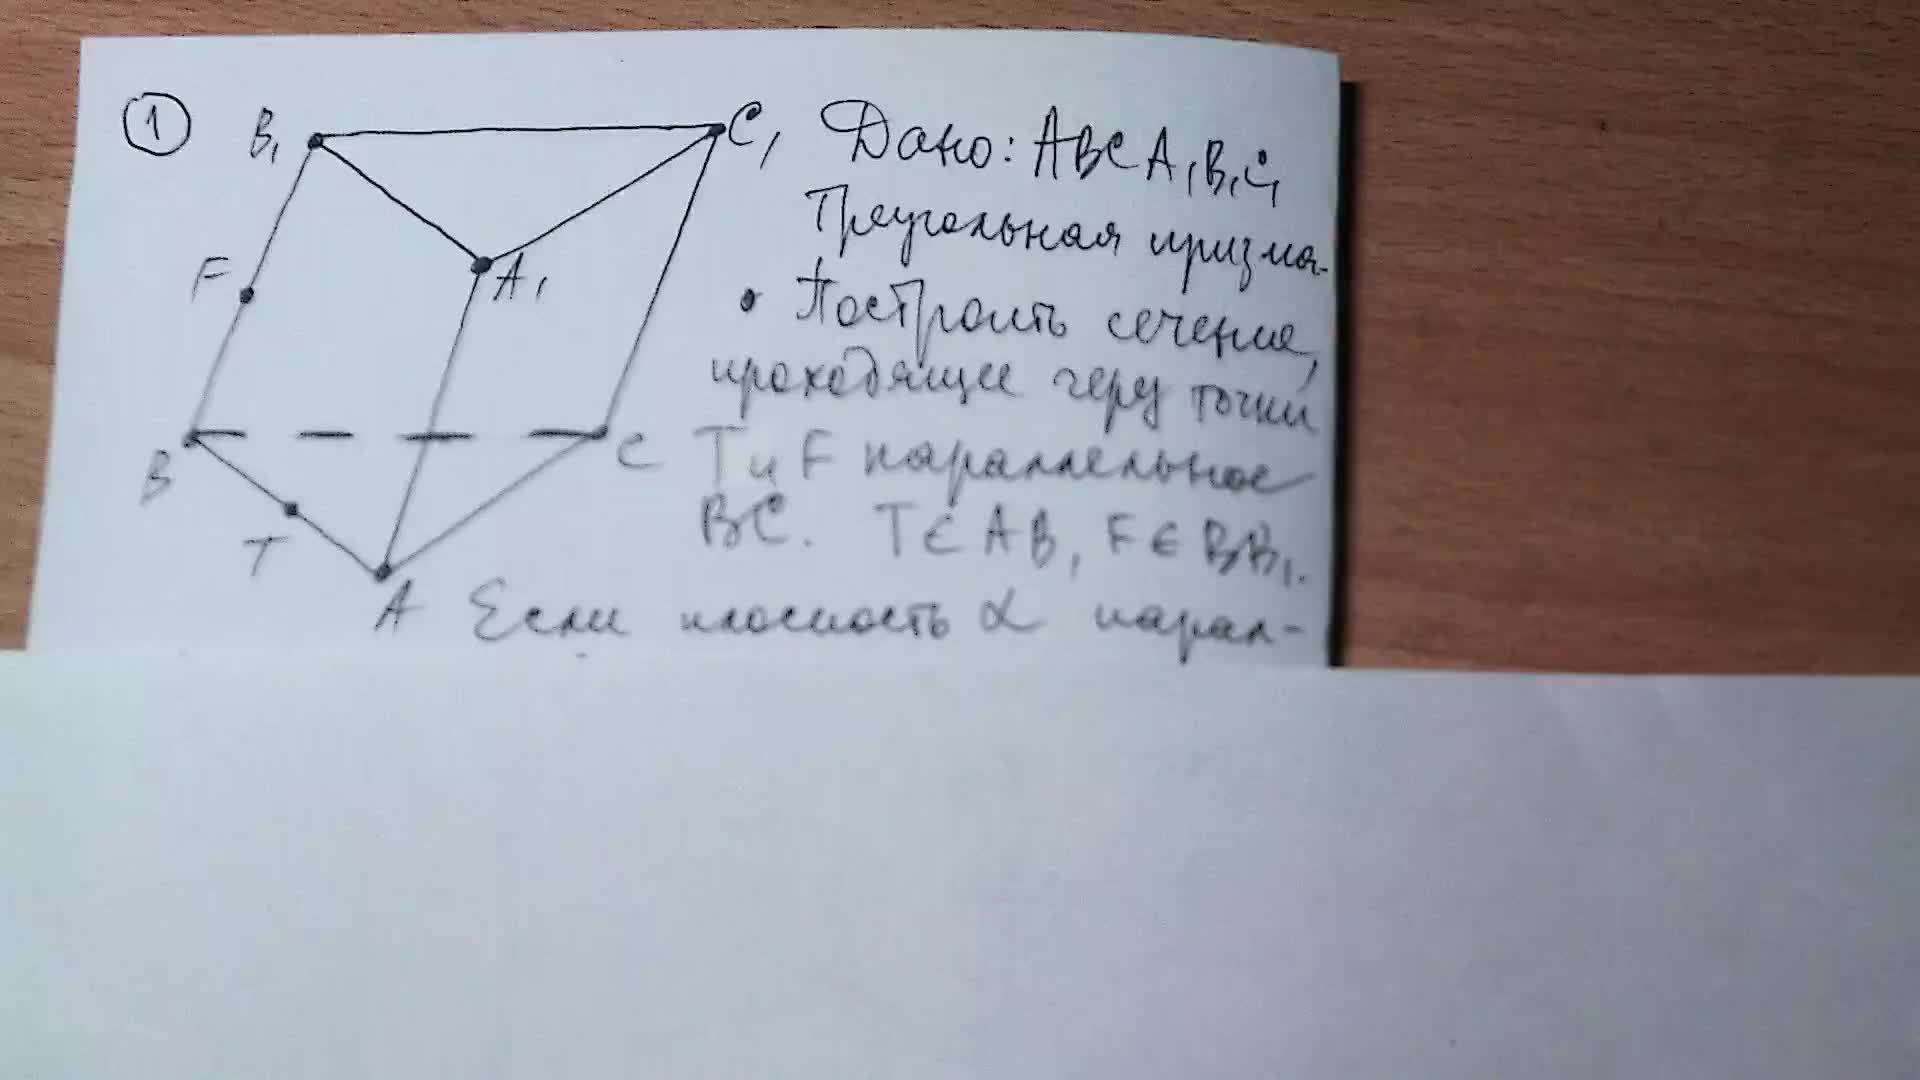 1
B₁
C₁
Дано: ABCA₁B₁C₁
Треугольная призма.
F
A₁
• Построить сечение,
проходящее через точки
B
C
T и F параллельное
BC. T ∈ AB, F ∈ BB₁.
T
A
Если плоскость α парал-